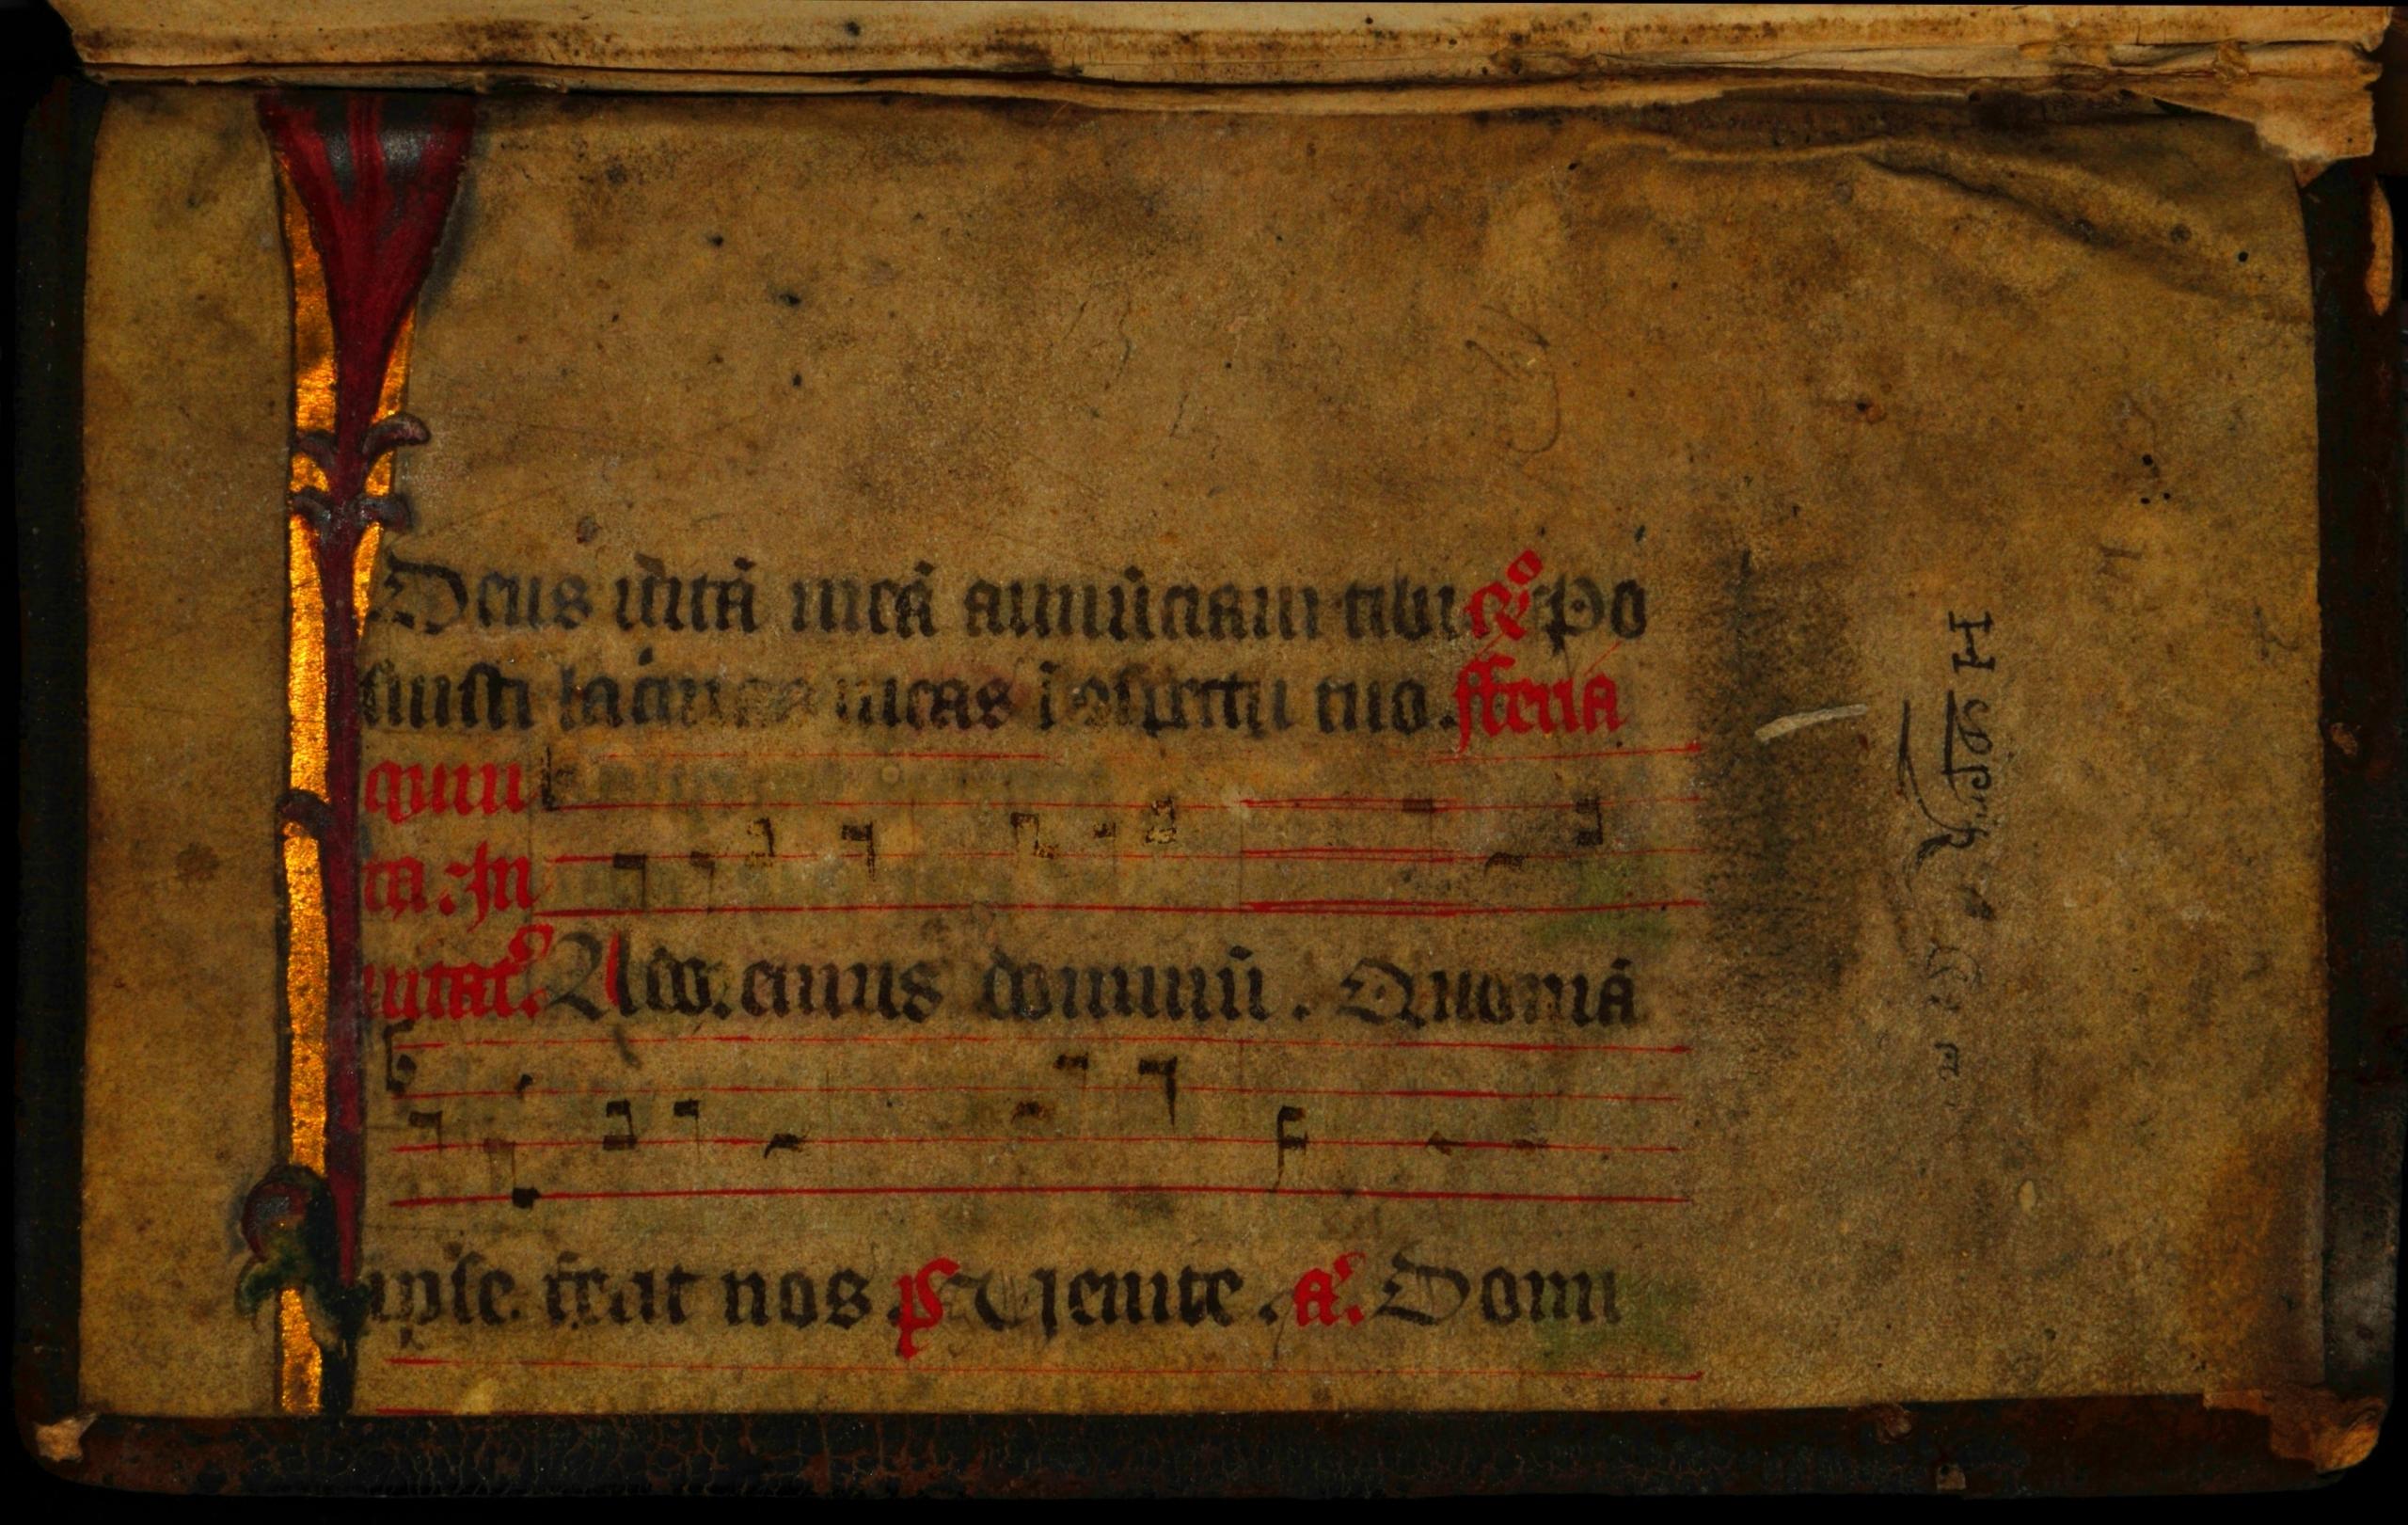 Deus uitā meā annūciaui tibi R° Po
suisti lacrimas meas ī ↄspectu tuo. fferia
quin
ta. In
uitat. Ado. emus dominū. Quoniā
ipse fecit nos ps Uenite. a. Domi